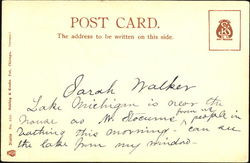 POST CARD.
The address to be written on this side.
Sarah Walker
Lake Michigan is near the
house as Mt Slocums
people in
bathing this morning - can see
the lake from my window.